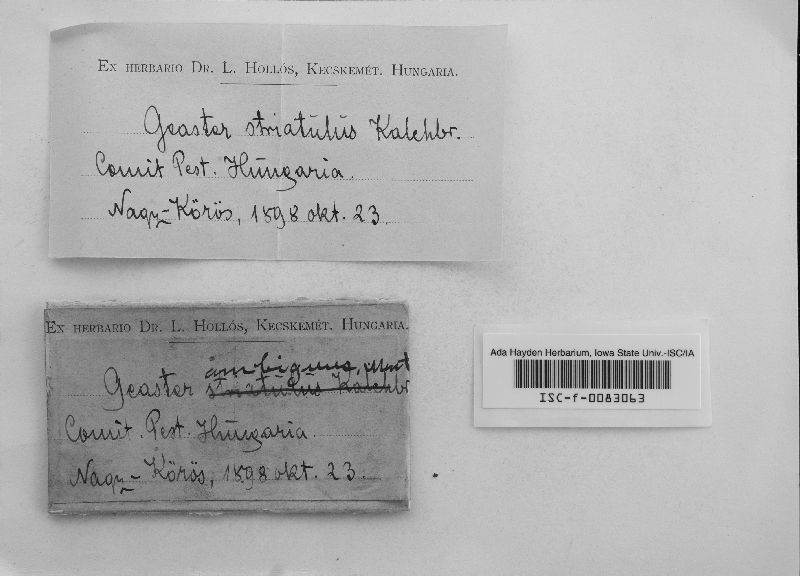 Ex herbario Dr. L. Hollós, Kecskemét. Hungaria.
Geaster striatulus Kalchbr.
Comit Pest. Hungaria.
Nagy-Körös, 1898 okt. 23.
Ex herbario Dr. L. Hollós, Kecskemét. Hungaria.
ambiguus, Mont
Geaster striatulus Kalchbr
Comit. Pest. Hungaria.
Nagy-Körös, 1898 okt. 23.
Ada Hayden Herbarium, Iowa State Univ.-ISC/IA
ISC-f-0083063